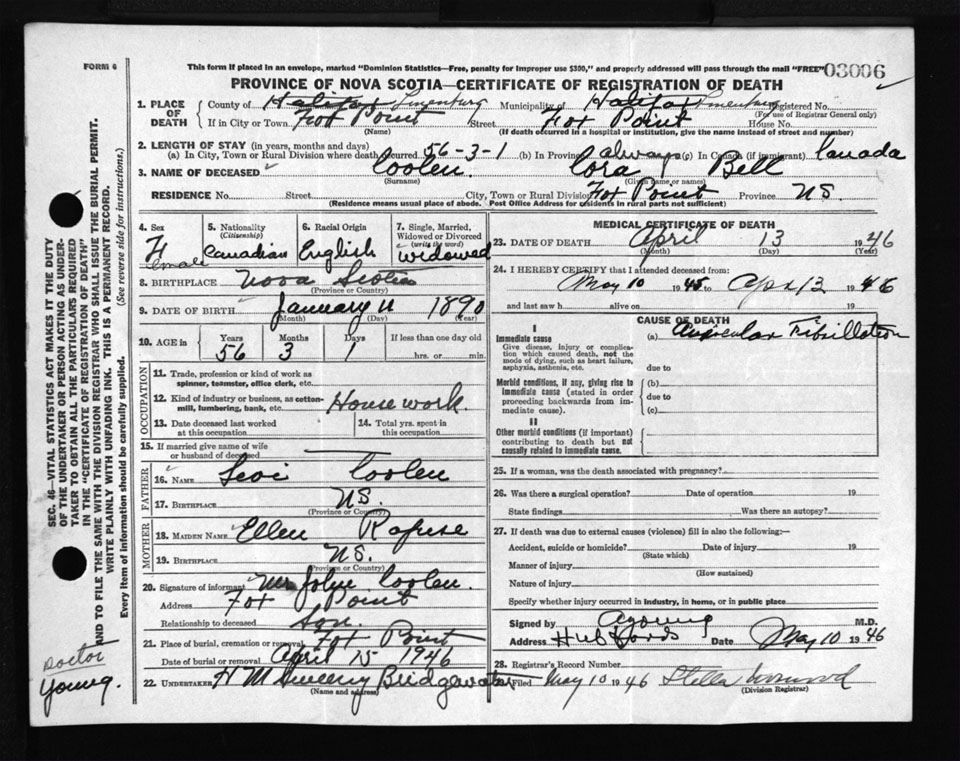 FORM 6
This form if placed in an envelope, marked "Dominion Statistics—Free, penalty for improper use $300," and properly addressed will pass through the mail "FREE"
03006
PROVINCE OF NOVA SCOTIA—CERTIFICATE OF REGISTRATION OF DEATH
1. PLACE OF DEATH County of Halifax Lunenburg Municipality of Halifax Lunenburg Registered No.
(For use of Registrar General only)
If in City or Town Fox Point Street Fox Point House No.
(Name) (If death occurred in a hospital or institution, give the name instead of street and number)
2. LENGTH OF STAY (in years, months and days)
(a) In City, Town or Rural Division where death occurred 56-3-1 (b) In Province always (c) In Canada (if immigrant) Canada
3. NAME OF DECEASED Coolen. Cora Bell
(Surname) (Given name or names)
RESIDENCE No. Street City, Town or Rural Division Fox Point Province N.S.
(Residence means usual place of abode. Post Office Address for residents in rural parts not sufficient)
4. Sex Female
5. Nationality (Citizenship) Canadian
6. Racial Origin English
7. Single, Married, Widowed or Divorced (write the word) widowed
8. BIRTHPLACE Nova Scotia
(Province or Country)
9. DATE OF BIRTH January 11 1890
(Month) (Day) (Year)
10. AGE in Years Months Days If less than one day old
56 3 1 hrs. or min.
OCCUPATION
11. Trade, profession or kind of work as spinner, teamster, office clerk, etc.
12. Kind of industry or business, as cotton-mill, lumbering, bank, etc. Housework.
13. Date deceased last worked at this occupation
14. Total yrs. spent in this occupation
15. If married give name of wife or husband of deceased
FATHER
16. NAME Levi Coolen
17. BIRTHPLACE N.S.
(Province or Country)
MOTHER
18. MAIDEN NAME Ellen Rafuse
19. BIRTHPLACE N.S.
(Province or Country)
20. Signature of informant Mr John Coolen.
Address Fox Point
Relationship to deceased son.
21. Place of burial, cremation or removal Fox Point
Date of burial or removal April 15 1946
22. UNDERTAKER H M Sweeny Bridgewater
(Name and address)
MEDICAL CERTIFICATE OF DEATH
23. DATE OF DEATH April 13 1946
(Month) (Day) (Year)
24. I HEREBY CERTIFY that I attended deceased from:
May 10 1945 to Apr 13 1946
and last saw h alive on 19
CAUSE OF DEATH
I
Immediate cause
Give disease, injury or complication which caused death, not the mode of dying, such as heart failure, asphyxia, asthenia, etc.
(a) Auricular Fibrillation
due to
Morbid conditions, if any, giving rise to immediate cause (stated in order proceeding backwards from immediate cause).
(b)
due to
(c)
II
Other morbid conditions (if important) contributing to death but not causally related to immediate cause.
25. If a woman, was the death associated with pregnancy?
26. Was there a surgical operation? Date of operation 19
State findings Was there an autopsy?
27. If death was due to external causes (violence) fill in also the following:—
Accident, suicide or homicide? Date of injury 19
(State which)
Manner of injury
(How sustained)
Nature of injury
Specify whether injury occurred in industry, in home, or in public place
Signed by A Young M.D.
Address Hubbards Date May 10 1946
28. Registrar's Record Number
Filed May 10 1946 Stella
(Division Registrar)
SEC. 46—VITAL STATISTICS ACT MAKES IT THE DUTY
OF THE UNDERTAKER OR PERSON ACTING AS UNDER-
TAKER TO OBTAIN ALL THE PARTICULARS REQUIRED
IN THE "CERTIFICATE OF REGISTRATION OF DEATH"
AND TO FILE THE SAME WITH THE DIVISION REGISTRAR WHO SHALL ISSUE THE BURIAL PERMIT.
WRITE PLAINLY WITH UNFADING INK. THIS IS A PERMANENT RECORD.
Every item of information should be carefully supplied. (See reverse side for instructions.)
Doctor
Young.